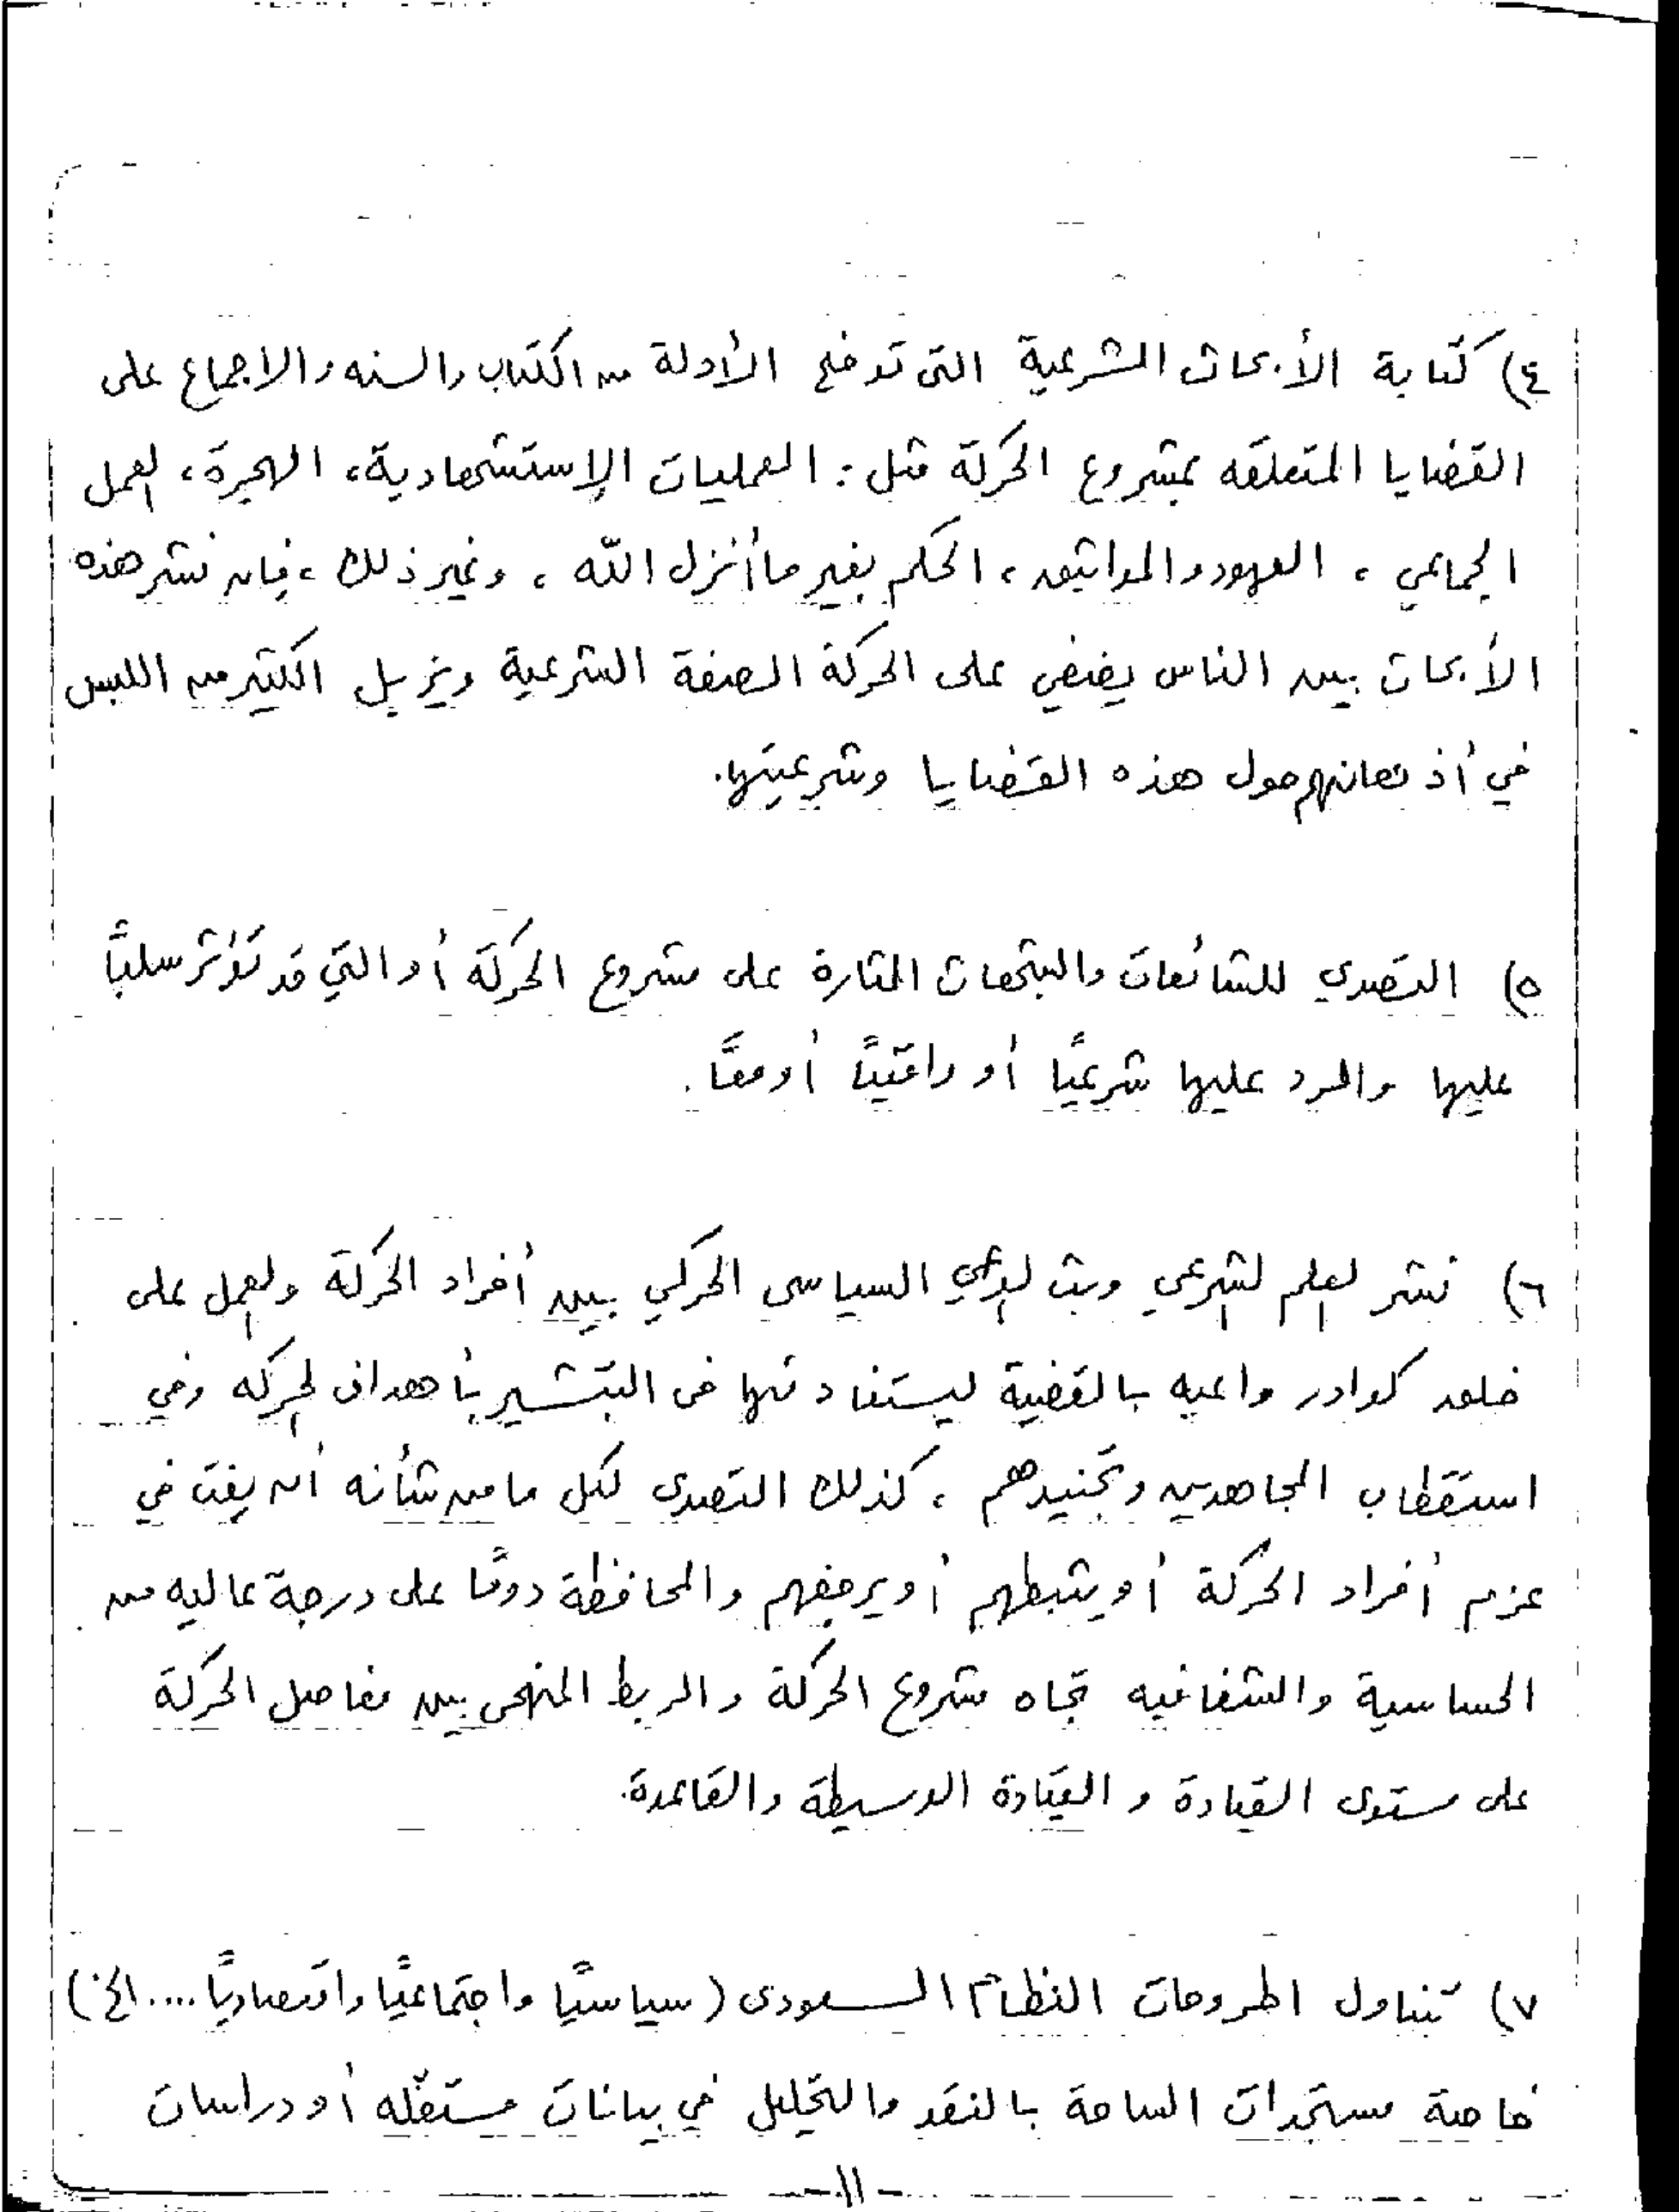 ٤) كتابة الأبحاث الشرعية التى توضح الأدلة من الكتاب والسنه والاجماع على
القضايا المتعلقه بمشروع الحركة مثل : العمليات الإستشهادية، الهجرة، العمل
الجماعي ، العهود والمواثيق ، الحكم بغير ما أنزل الله ، وغير ذلك ، فإن نشر هذه
الأبحاث بين الناس يضفي على الحركة الصفة الشرعية ويزيل الكثير من اللبس
في أذهانهم حول هذه القضايا وشرعيتها.
٥) التصدي للشائعات والشبهات المثارة على مشروع الحركة أو التي قد تؤثر سلبًا
عليها والرد عليها شرعيًا أو واقعيًا أو معًا .
٦) نشر العلم الشرعي وبث الوعي السياسى الحركي بين أفراد الحركة والعمل على
خلق كوادر واعيه بالقضية ليستفاد منها فى التبشير بأهداف الحركه وفي
استقطاب المجاهدين وتجنيدهم ، كذلك التصدى لكل ما من شأنه أن يفت في
عزم أفراد الحركة أو يثبطهم أو يرجفهم والمحافظة دومًا على درجة عاليه من
الحساسية والشفافيه تجاه مشروع الحركة والربط المنهجى بين مفاصل الحركة
على مستوى القيادة و القيادة الوسيطة والقاعدة.
٧) تناول اطروحات النظام السعودى (سياسيًا واجتماعيًا واقتصاديًا .... الخ)
خاصة مستجدات الساحة بالنقد والتحليل في بيانات مستقله أو دراسات
- ١١ -